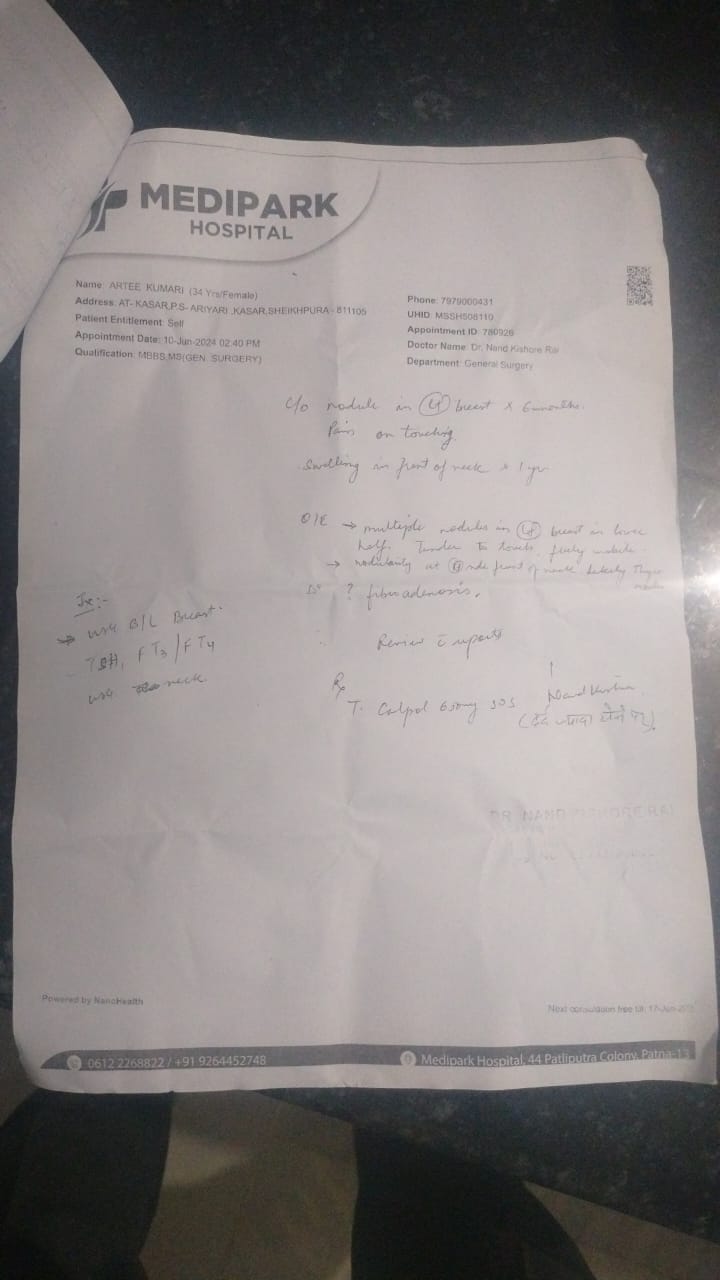 MEDIPARK
HOSPITAL
Name: ARTEE KUMARI (34 Yrs/Female)
Address: AT- KASAR,P.S- ARIYARI ,KASAR,SHEIKHPURA - 811105
Patient Entitlement: Self
Appointment Date: 10-Jun-2024 02:40 PM
Qualification: MBBS,MS(GEN. SURGERY)
Phone: 7979000431
UHID: MSSH508110
Appointment ID: 780926
Doctor Name: Dr. Nand Kishore Rai
Department: General Surgery
c/o nodule in breast x 6 months.
Pain on touching.
Swelling in front of neck x 1 yr
O/E → multiple nodules in breast in lower
half. Tender to touch, freely mobile.
→ nodularity at front of neck
? fibroadenosis.
Review c reports
Ix:-
→ USG B/L Breast.
- TSH, FT3/FT4
USG neck
Rx
T. Calpol 650mg SOS
Nand Kishore
(दर्द ज्यादा होने पर)
DR NAND KISHORE RAI
Powered by NanoHealth
Next consultation free till: 17-Jun-
0612 2268822 / +91 9264452748
Medipark Hospital, 44 Patliputra Colony, Patna-13